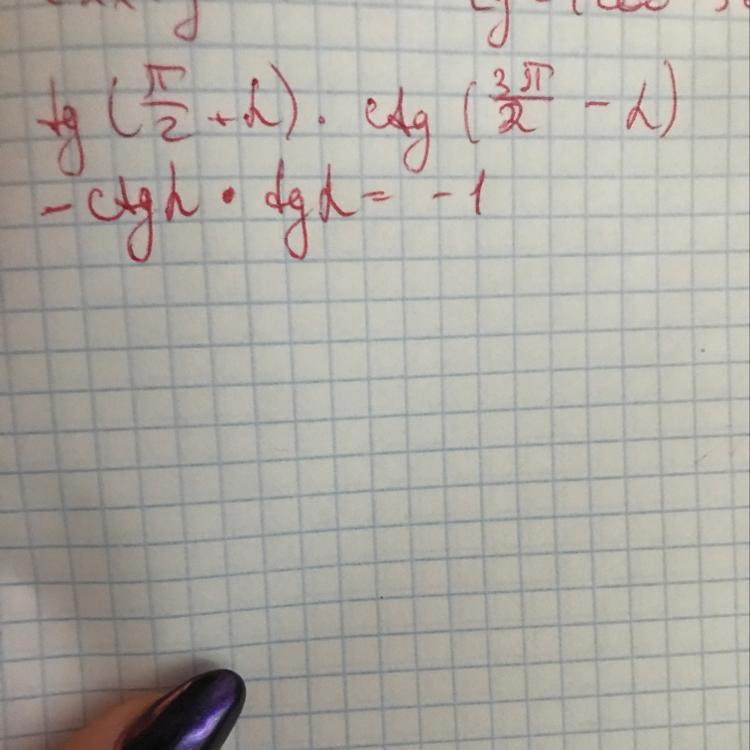 tg (π/2 + α) · ctg (3π/2 - α)
- ctg α · tg α = - 1